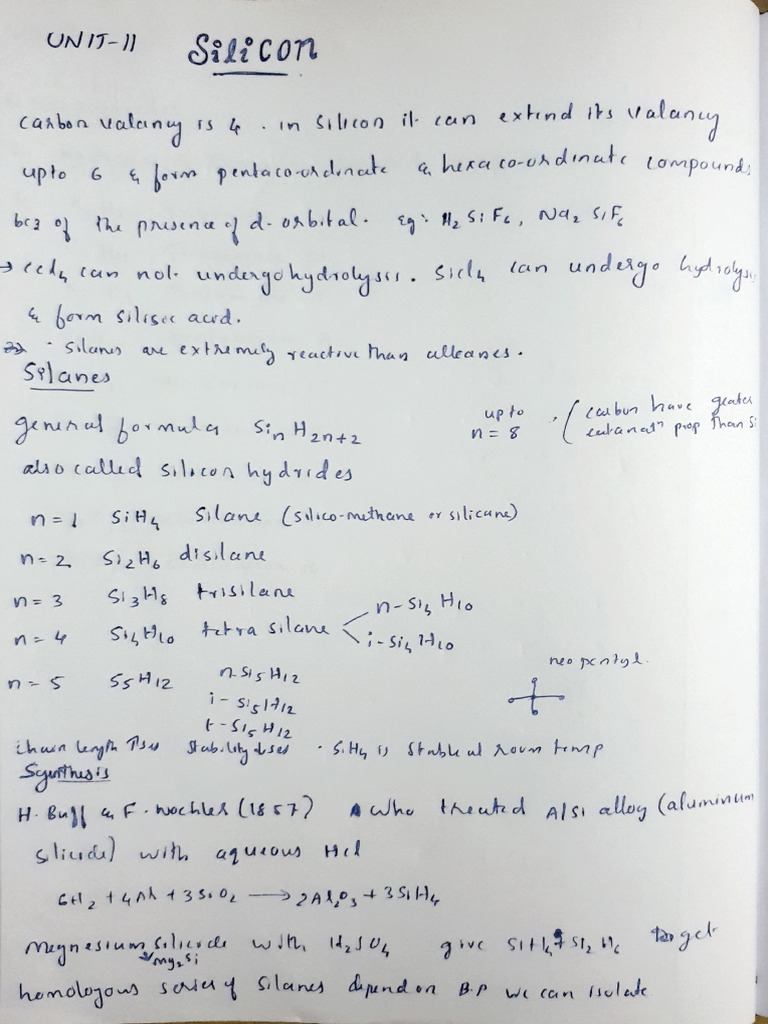 UNIT-11 Silicon
Carbon valancy is 4. in silicon it can extend its valancy
upto 6 & form pentaco-ordinate & hexaco-ordinate compounds
bcz of the presence of d-orbital. Eg: H2SiF6, Na2SiF6
→ CCl4 can not undergo hydrolysis. SiCl4 can undergo hydrolysis
& form silisic acid.
· Silanes are extremely reactive than alkanes.
Silanes
general formula SinH2n+2 upto n=8 (carbon have greater catanatn prop than Si
also called silicon hydrides
n=1 SiH4 Silane (silico-methane or silicane)
n=2 Si2H6 disilane
n=3 Si3H8 trisilane
n=4 Si4H10 tetra silane n-Si4H10
i-Si4H10
n=5 S5H12 n-Si5H12 neo pentyl.
i-Si5H12
t-Si5H12
Chain length ↑ses stability ↓ses · SiH4 is stable at room temp
Synthesis
H. Buff & F. Wochler (1857) who treated AlSi alloy (aluminum
silicide) with aqueous HCl
6H2 + 4Al + 3SiO2 → 2Al2O3 + 3SiH4
Megnesium silicide with H2SO4 give SiH4 + Si2H6 to get
Mg2Si
homologous series of silanes depend on B.P we can isolate